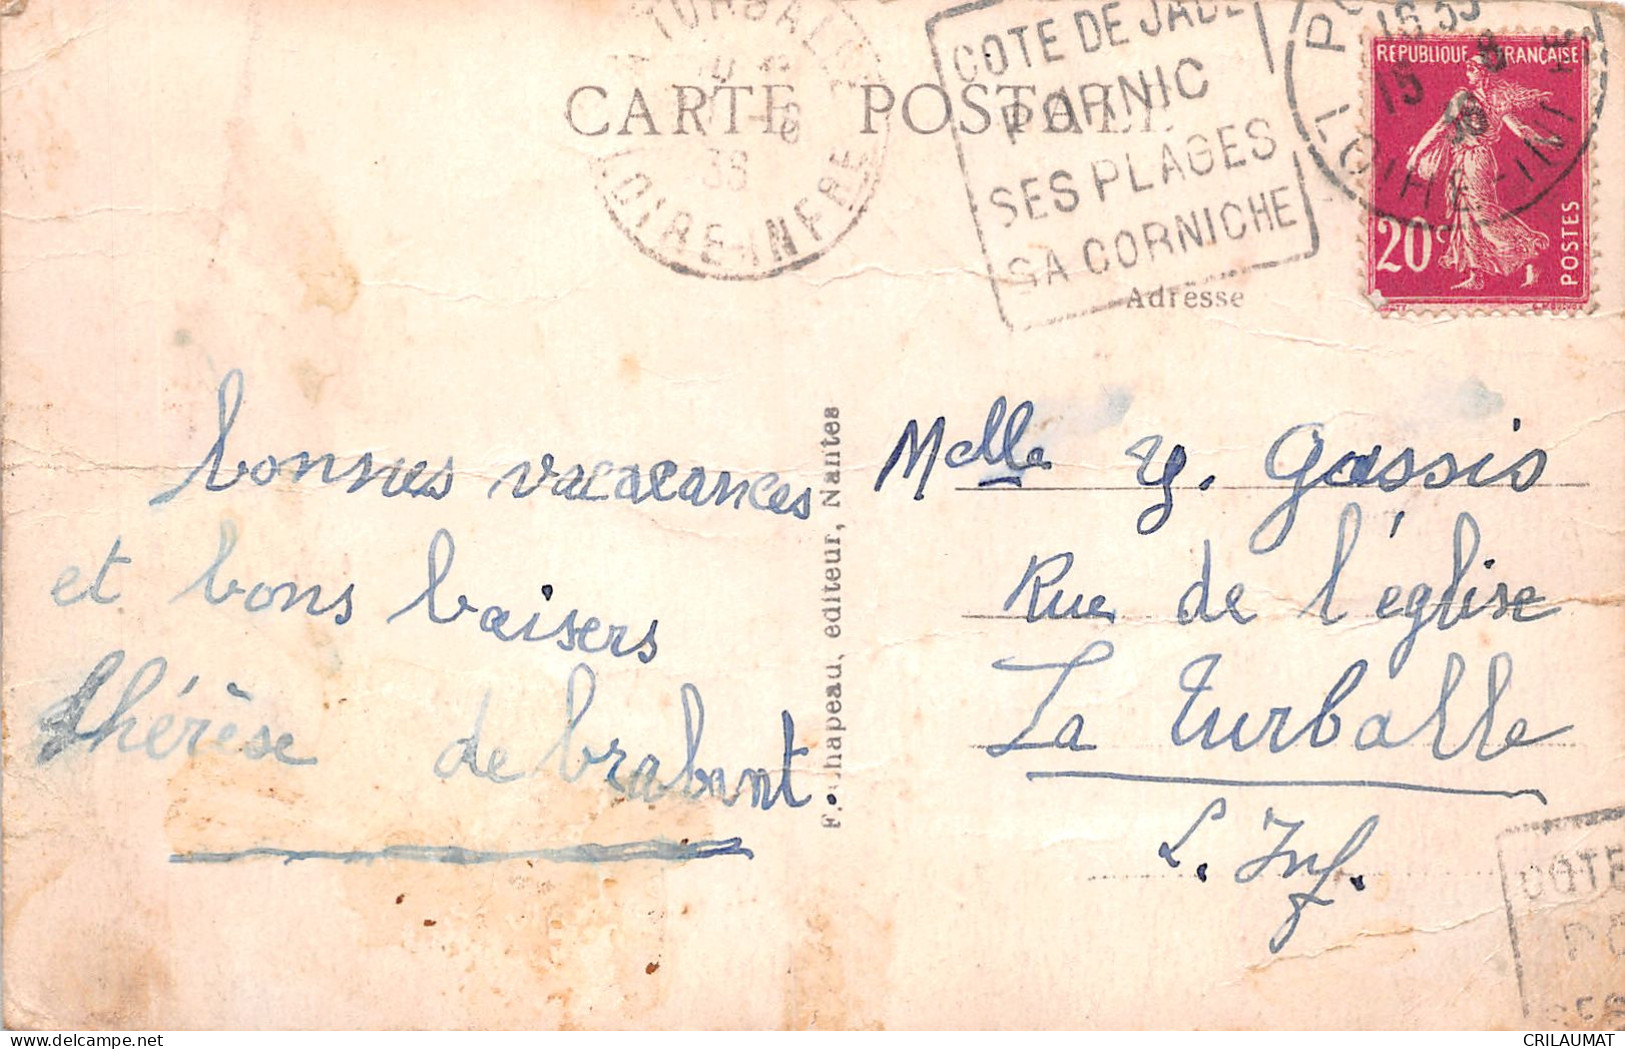 LA TURBALLE
38
LOIRE-INFRE
COTE DE JADE
PORNIC
SES PLAGES
SA CORNICHE
16 35
15 8 38
LOIRE-INF
REPUBLIQUE FRANÇAISE
20c
POSTES
CARTE POSTALE
Adresse
bonnes vacacances
et bons baisers
thérèse de brabant
F. Chapeau, editeur, Nantes
Melle Y. Gassis
Rue de l'église
La Turballe
L. Inf.
COTE
PO
SES
CRILAUMAT